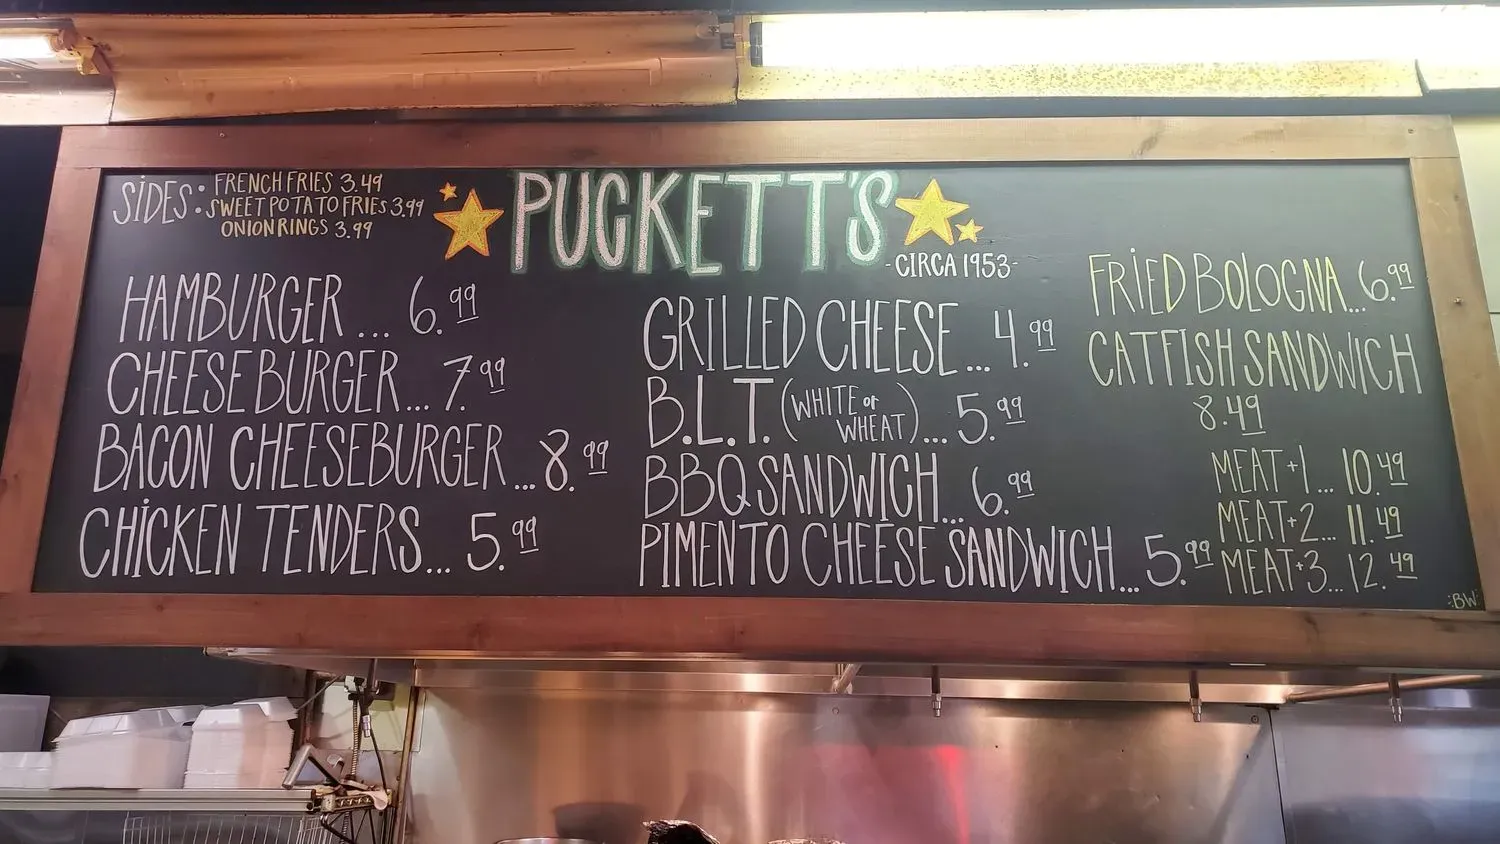 SIDES: FRENCH FRIES 3.49
SWEET POTATO FRIES 3.99
ONION RINGS 3.99
PUCKETT'S
-CIRCA 1953-
HAMBURGER ... 6.99
CHEESEBURGER... 7.99
BACON CHEESEBURGER... 8.99
CHICKEN TENDERS... 5.99
GRILLED CHEESE... 4.99
B.L.T. (WHITE or WHEAT)... 5.99
BBQ SANDWICH... 6.99
PIMENTO CHEESE SANDWICH... 5.99
FRIED BOLOGNA... 6.99
CATFISH SANDWICH
8.49
MEAT+1... 10.49
MEAT+2... 11.49
MEAT+3... 12.49
:BW: